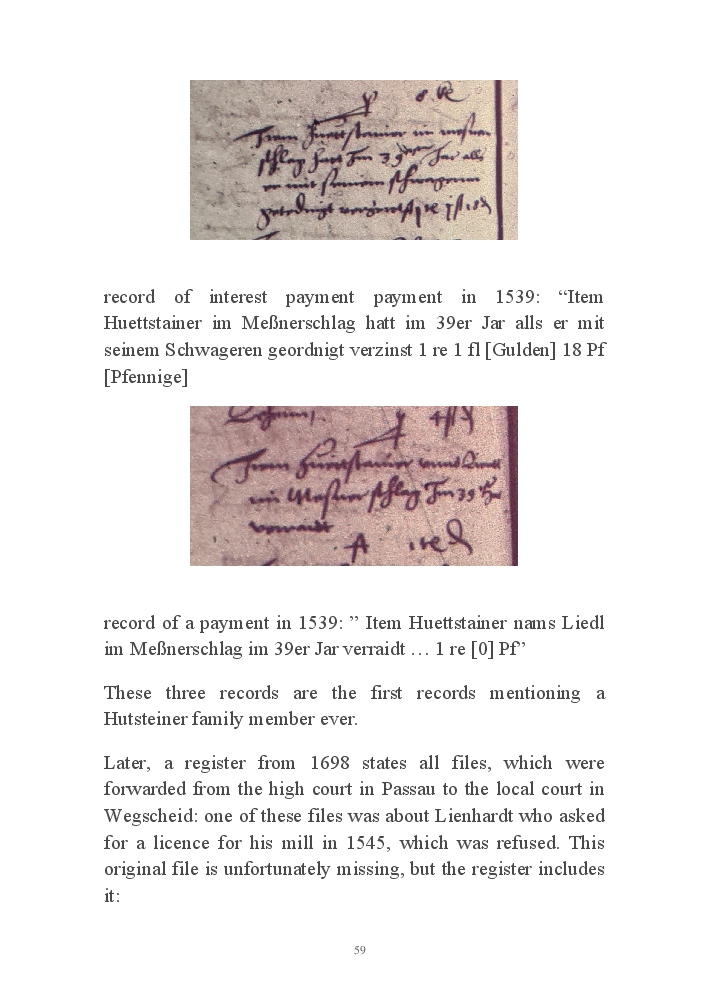 record of interest payment payment in 1539: “Item
Huettstainer im Meßnerschlag hatt im 39er Jar alls er mit
seinem Schwageren geordnigt verzinst 1 re 1 fl [Gulden] 18 Pf
[Pfennige]
record of a payment in 1539: ” Item Huettstainer nams Liedl
im Meßnerschlag im 39er Jar verraidt … 1 re [0] Pf”
These three records are the first records mentioning a
Hutsteiner family member ever.
Later, a register from 1698 states all files, which were
forwarded from the high court in Passau to the local court in
Wegscheid: one of these files was about Lienhardt who asked
for a licence for his mill in 1545, which was refused. This
original file is unfortunately missing, but the register includes
it:
59